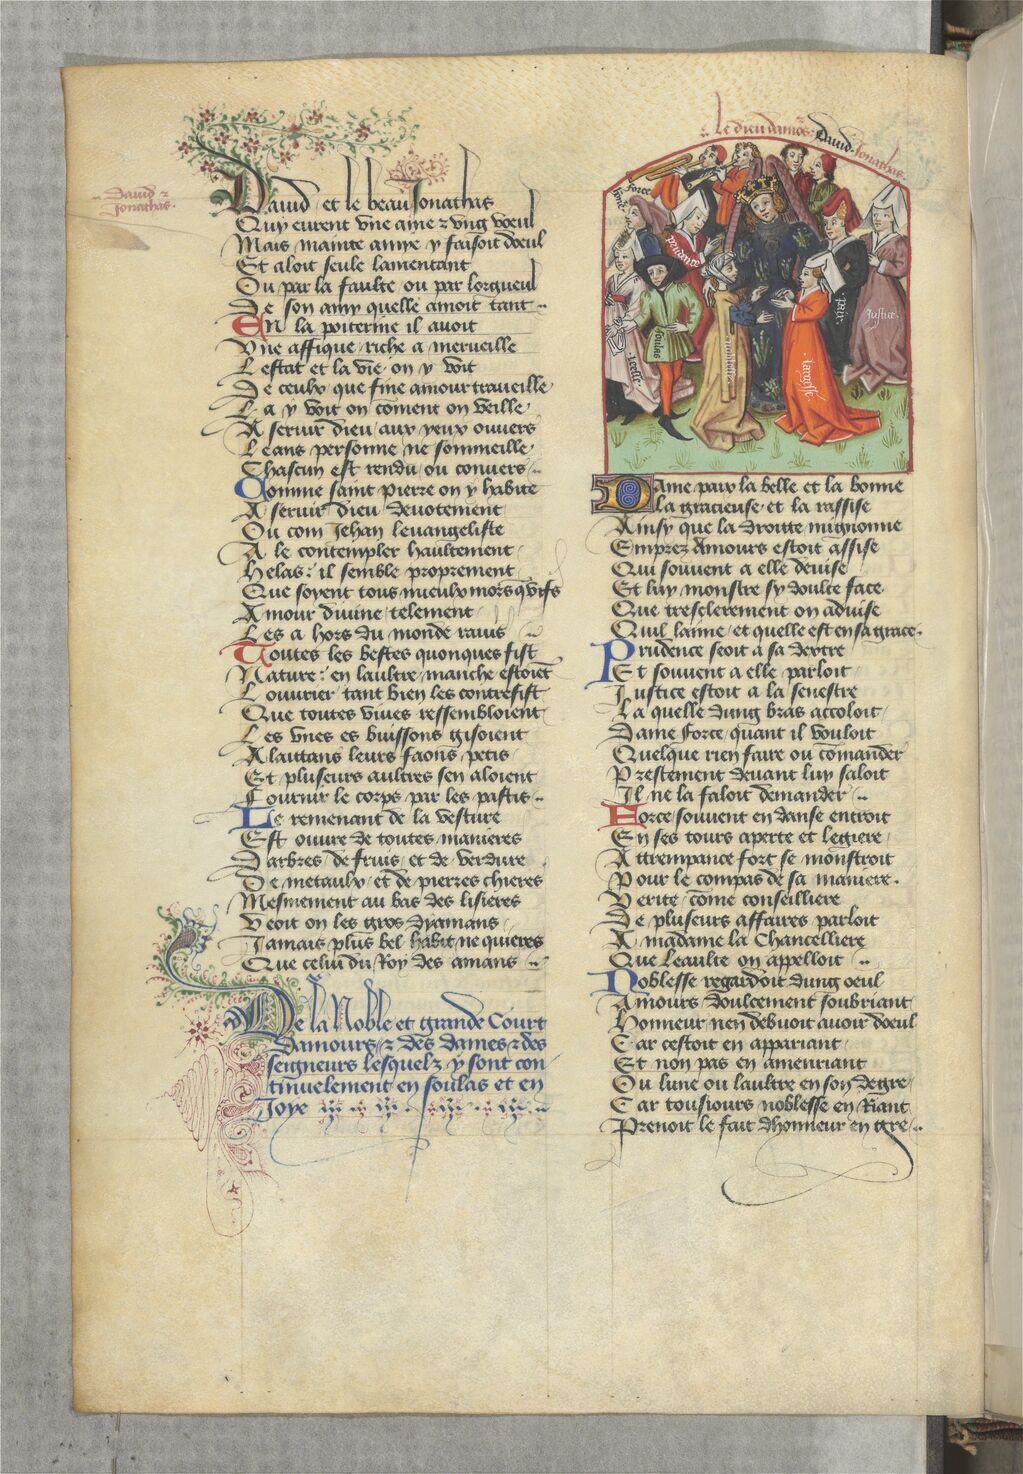 Dauid et
Jonathas.
Dauid et le beau Jonathas
Quy eurent vne ame et vng voeul
Mais mainte amye y faisoit doeul
Et aloit seule lamentant
Ou par la faulte ou par lorgueul
De son amy quelle amoit tant
En la poiterine il auoit
Vne affique riche a merueille
Lestat et la vie on y voit
De ceulx que fine amour traueille
La y voit on cõment on veille
A seruir dieu aux yeux ouuers
Leans personne ne sommeille
Chascun est rendu ou conuers
Comme saint pierre on y habite
A seruir dieu deuotement
Ou com Jehan leuangeliste
A le contempler haultement
Helas: il semble proprement
Que soyent tous mieulx mors q̃ vifs
Amour diuine telement
Les a hors du monde rauis
Toutes les bestes quonques fist
Nature: en laultre manche estoiẽt
Louurier tant bien les contrefist
Que toutes viues ressembloient
Les vnes es buissons gisoient
Alaittans leurs faons petis
Et pluseurs aultres sen aloient
Fournir le corps par les pastis
Le remenant de la vesture
Est ouure de toutes manieres
Darbres de fruis et de verdure
De metaulx et de pierres chieres
Mesmement au bas des lisieres
Veoit on les gros dyamans
Jamais plus bel habit ne quieres
Que celui du Roy des amans
De la Noble et grande Court
damours et des dames et des
seigneurs lesquelz y sont con
tinuelement en soulas et en
Joye
Le dieu damõs. Dauid. Jonathas.
force
prudence
largesse
justice
Dame paix la belle et la bonne
La gracieuse et la rassise
Ainsy que la droitte mignonne
Emprez Amours estoit assise
Qui souuent a elle deuise
Et luy monstre sy doulce face
Que tresclerement on aduise
Quil laime et quelle est en sa grace.
Prudence seoit a sa dextre
Et souuent a elle parloit
Justice estoit a la senestre
La quelle dung bras accoloit
Dame force, quant il vouloit
Quelque rien faire ou cõmander
Prestement deuant luy saloit
Il ne la faloit demander
Force souuent en danse entroit
En ses tours aperte et legiere
Attrempance fort se monstroit
Pour le compas de sa maniere.
Verite cõme conseilliere
De pluseurs affaires parloit
A madame la Chancelliere
Que Leaulte on appelloit
Noblesse regardoit dung oeul
Amours doulcement soubriant
Honneur nen debuoit auoir doeul
Car cestoit en appariant
Et non pas en amenriant
Ou lune ou laultre en son degre
Car tousiours noblesse en Riant
Prenoit le fait dhonneur en gre